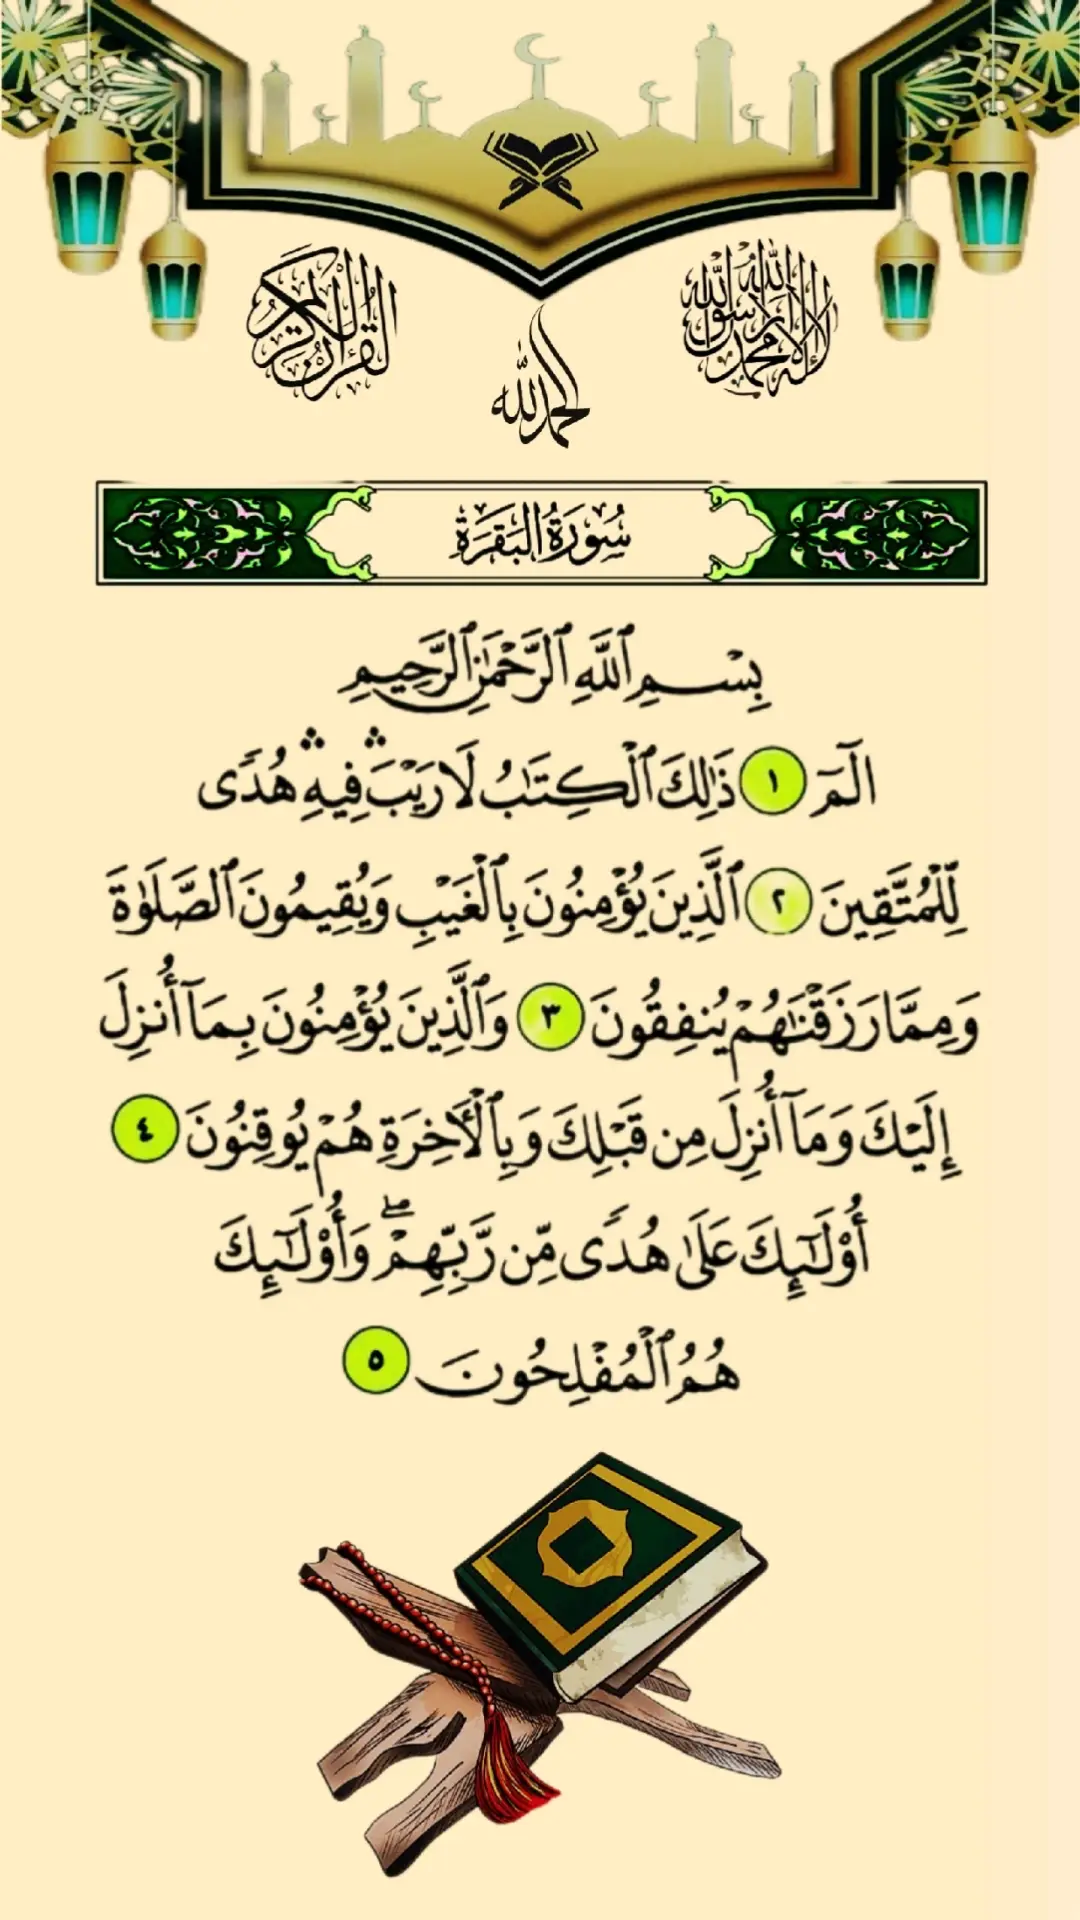 القرآن الكريم
لا إله إلا الله محمد رسول الله
الحمد لله
سُورَةُ البَقَرَةِ
بِسْمِ ٱللَّهِ ٱلرَّحْمَٰنِ ٱلرَّحِيمِ
الٓمٓ ١ ذَٰلِكَ ٱلْكِتَٰبُ لَا رَيْبَۛ فِيهِۛ هُدًى
لِّلْمُتَّقِينَ ٢ ٱلَّذِينَ يُؤْمِنُونَ بِٱلْغَيْبِ وَيُقِيمُونَ ٱلصَّلَوٰةَ
وَمِمَّا رَزَقْنَٰهُمْ يُنفِقُونَ ٣ وَٱلَّذِينَ يُؤْمِنُونَ بِمَآ أُنزِلَ
إِلَيْكَ وَمَآ أُنزِلَ مِن قَبْلِكَ وَبِٱلْأَخِرَةِ هُمْ يُوقِنُونَ ٤
أُوْلَٰٓئِكَ عَلَىٰ هُدًى مِّن رَّبِّهِمْۖ وَأُوْلَٰٓئِكَ
هُمُ ٱلْمُفْلِحُونَ ٥